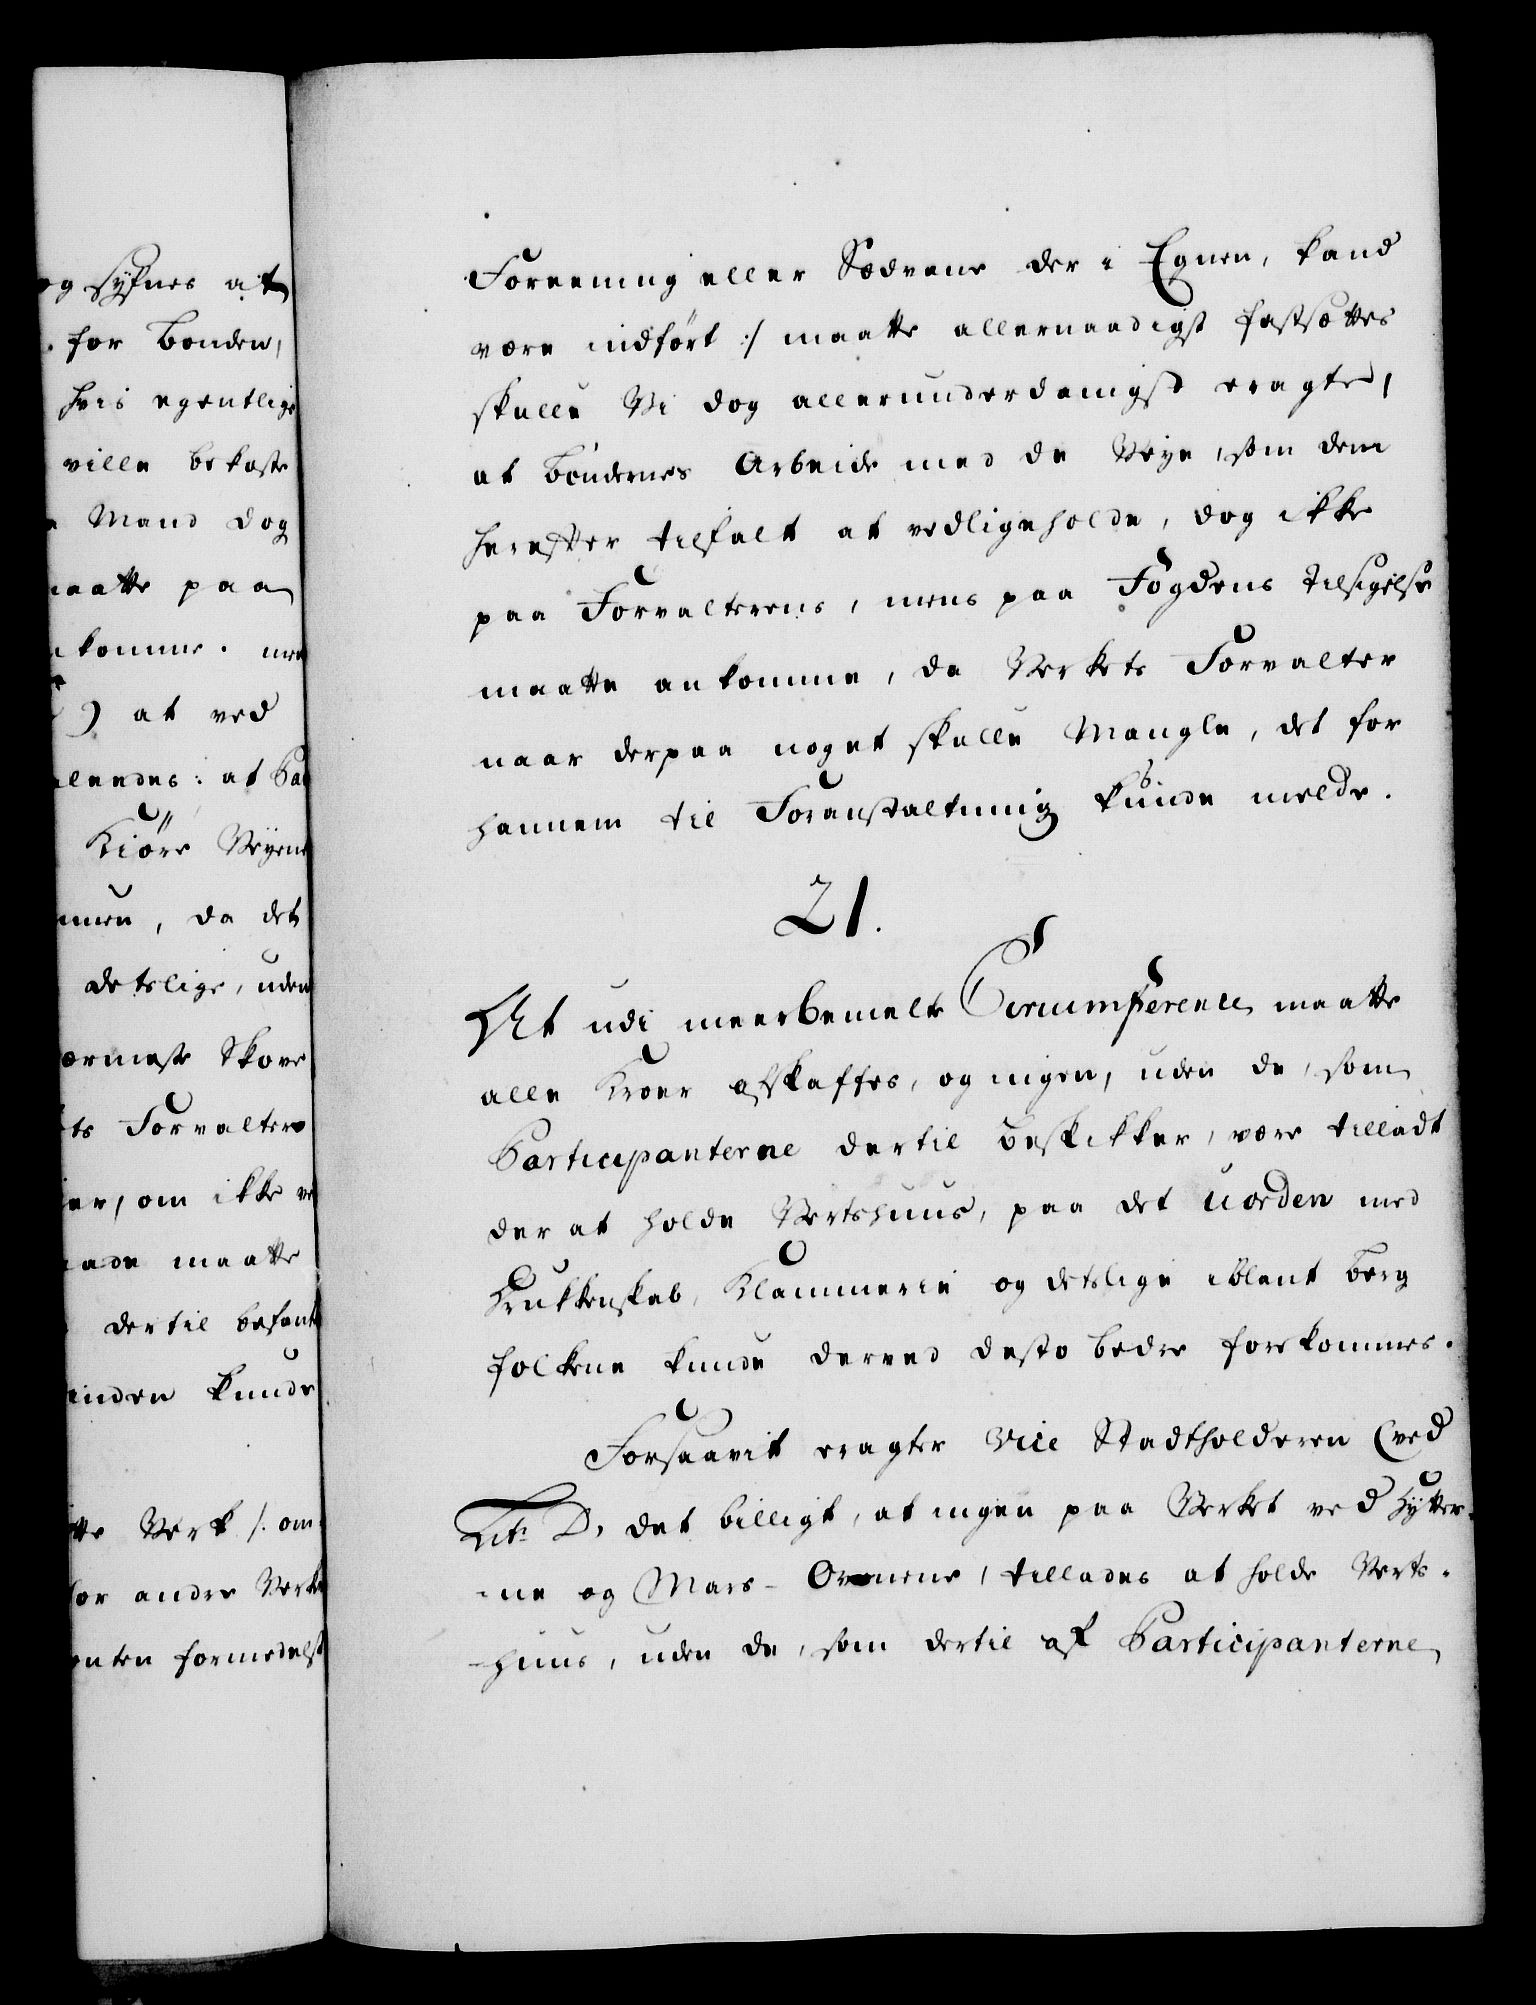 og syhnes at
for bonden,
hvis egentlige
ville bekoste
Mand dog
maatte paa
komme. men
) at ved
aleedes: at Par
Kiøre Veyene
men, da det
detslige, uden
nærmeste Skove
ts Forvaltere
ier, om ikke ve
aade maatte
dertil befant
inden kunde
tte Verk /: om
for andre Verke
enten formedelst
Foreening eller Sædvane der i Egnen, kand
være indført :/ maatte allernaadigst fastsættes
skulle Vi dog allerunderdanigst eragte,
at bøndernes Arbeide med de Veye, som dem
herefter tilfalt at vedligeholde, dog ikke
paa Forvalterens, mens paa Fogdens tilsigelse
maatte ankomme, da Verkets Forvalter
naar derpaa noget skulle Mangle, det for
hannem til Foranstaltning kunde melde.
21.
At udi meerbemelte Circumference maatte
alle Kroer afskaffes, og ingen, uden de, som
Participanterne dertil beskikker, være tilladt
der at holde Vertshuus, paa det uorden med
Drukkenskab, Klammerie og detslige iblant berg
folkene kunde derved desto bedre forekommes.
Forsaavit eragter Vice Stadtholderen (ved
Lit: D, det billigt, at ingen paa Verket ved Hytter-
-ne og Mars-Ovnene, tillades at holde Verts-
-huus, uden de, som dertil af Participanterne